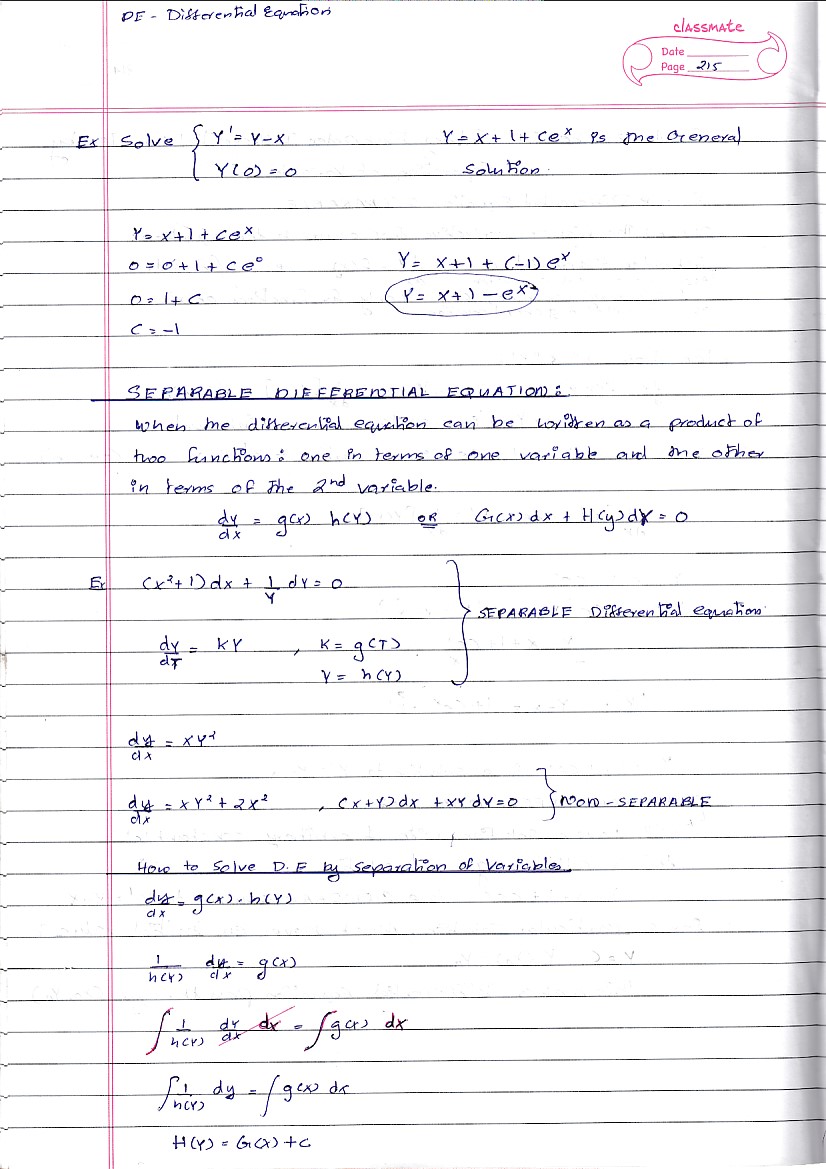 DE - Differential Equation
classmate
Date
Page 215
Ex Solve { Y' = Y-X    Y = X+1+Ce^x is the General
Y(0) = 0    Solution.
Y = X+1+Ce^x
0 = 0+1+Ce^0    Y = X+1+(-1)e^x
0 = 1+C    Y = X+1-e^x
C = -1
SEPARABLE DIFFERENTIAL EQUATION:
When the differential equation can be written as a product of
two functions: one in terms of one variable and the other
in terms of the 2nd variable.
dy/dx = g(x) h(Y) OR G(x) dx + H(y) dy = 0
Ex (x²+1) dx + 1/Y dY = 0
SEPARABLE Differential equation
dy/dT = KY , K = g(T)
Y = h(Y)
dy/dx = XY²
dy/dx = XY² + 2X² , (X+Y) dx + XY dY = 0 } NON-SEPARABLE
How to Solve D.E by Separation of Variables
dy/dx = g(x) . h(Y)
1/h(Y) dy/dx = g(x)
∫ 1/h(Y) dy/dx dx = ∫ g(x) dx
∫ 1/h(Y) dy = ∫ g(x) dx
H(Y) = G(X) + C